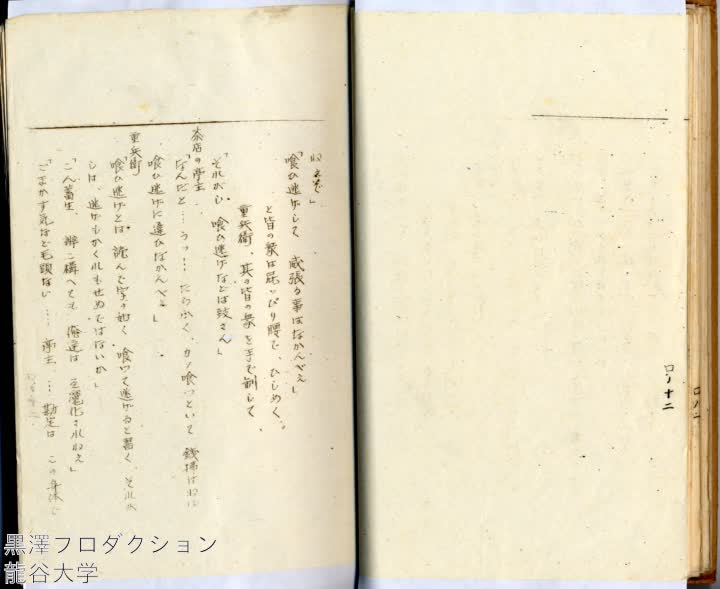 ロノ十二
ロノ二
ねえぞ」
「喰ひ逃げして 威張る事はなかんべえ」
と皆の衆は屁っぴり腰で、ひしめく。
重兵衛、其の皆の衆を手で制して、
「それがし 喰ひ逃げなどは致さん」
茶店の亭主
「なんだと…うっ!…たらふく、カッ喰つといて 銭払はねば
喰ひ逃げに違ひなかんべえ」
重兵衛
「喰ひ逃げとは、読んで字の如く 喰つて逃げると書く、それが
しは、逃げもかくれもせぬではないか」
「こん畜生、 構へても 俺達は 化されねえ」
「ごまかす気など毛頭ない…亭主…勘定は この身体で
黒澤プロダクション
龍谷大学